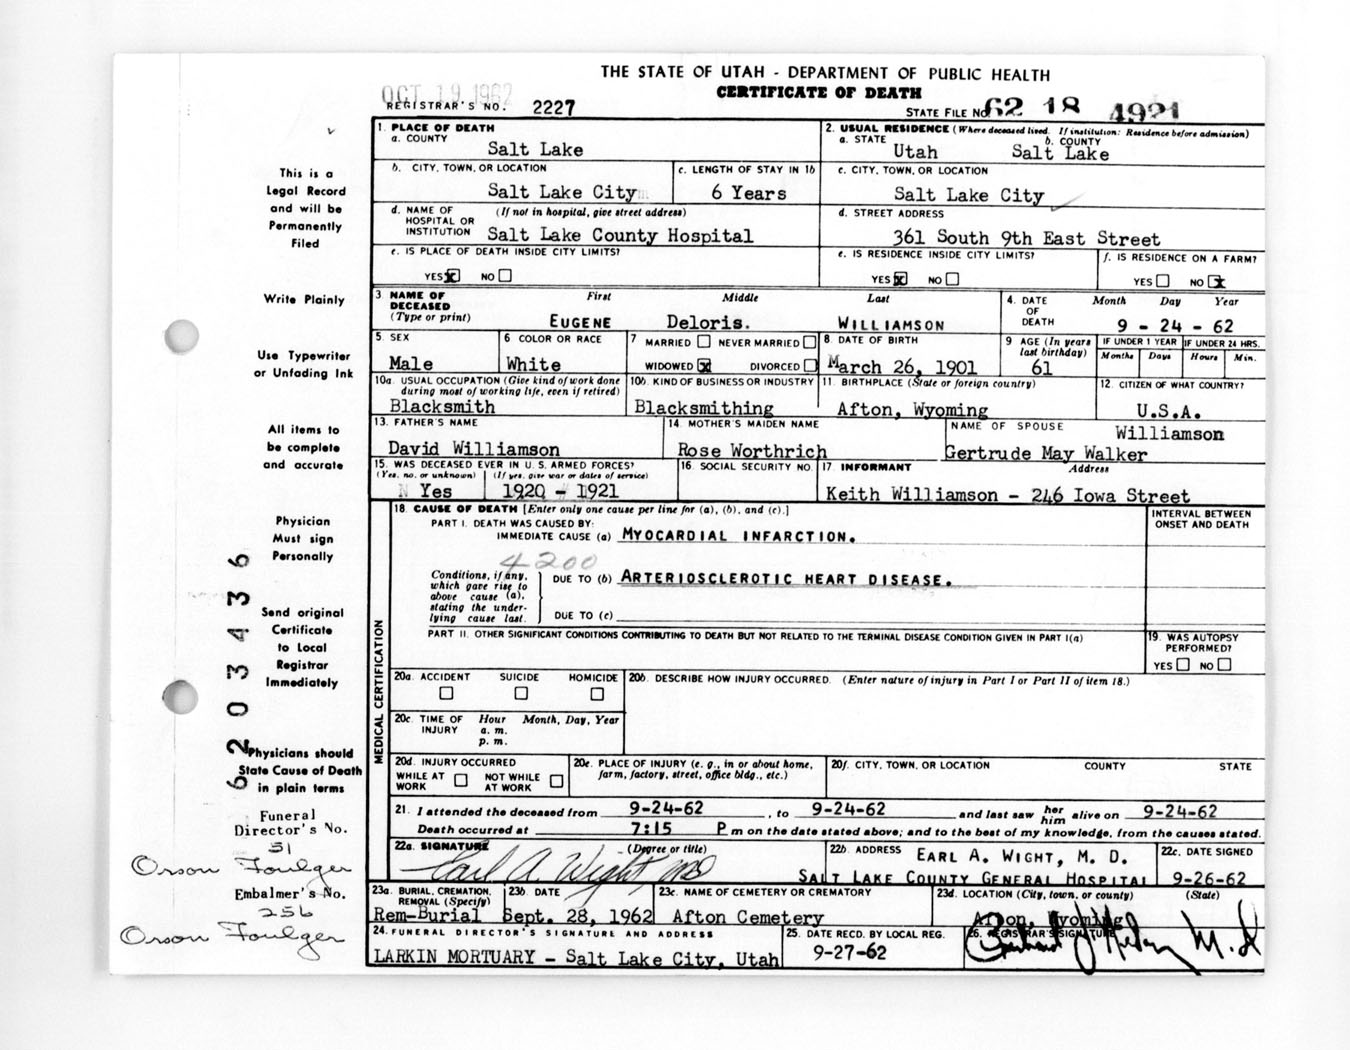 THE STATE OF UTAH - DEPARTMENT OF PUBLIC HEALTH
CERTIFICATE OF DEATH
OCT 19 1962
REGISTRAR'S NO. 2227
STATE FILE NO. 62 18 4921
1. PLACE OF DEATH
a. COUNTY Salt Lake
2. USUAL RESIDENCE (Where deceased lived. If institution: Residence before admission)
a. STATE Utah b. COUNTY Salt Lake
b. CITY, TOWN, OR LOCATION Salt Lake City
c. LENGTH OF STAY IN 1b 6 Years
c. CITY, TOWN, OR LOCATION Salt Lake City
d. NAME OF HOSPITAL OR INSTITUTION (If not in hospital, give street address) Salt Lake County Hospital
d. STREET ADDRESS 361 South 9th East Street
e. IS PLACE OF DEATH INSIDE CITY LIMITS? YES X NO
e. IS RESIDENCE INSIDE CITY LIMITS? YES X NO
f. IS RESIDENCE ON A FARM? YES NO X
3. NAME OF DECEASED (Type or print) First Middle Last
EUGENE Deloris. WILLIAMSON
4. DATE OF DEATH Month Day Year 9 - 24 - 62
5. SEX Male
6 COLOR OR RACE White
7 MARRIED NEVER MARRIED WIDOWED X DIVORCED
8. DATE OF BIRTH March 26, 1901
9 AGE (In years last birthday) 61
IF UNDER 1 YEAR Months Days
IF UNDER 24 HRS. Hours Min.
10a. USUAL OCCUPATION (Give kind of work done during most of working life, even if retired) Blacksmith
10b. KIND OF BUSINESS OR INDUSTRY Blacksmithing
11. BIRTHPLACE (State or foreign country) Afton, Wyoming
12. CITIZEN OF WHAT COUNTRY? U.S.A.
13. FATHER'S NAME David Williamson
14. MOTHER'S MAIDEN NAME Rose Worthrich
NAME OF SPOUSE Williamson Gertrude May Walker
15. WAS DECEASED EVER IN U. S. ARMED FORCES?
(Yes, no, or unknown) (If yes, give war or dates of service)
Yes 1920 - 1921
16. SOCIAL SECURITY NO.
17. INFORMANT Address
Keith Williamson - 246 Iowa Street
18. CAUSE OF DEATH [Enter only one cause per line for (a), (b), and (c).]
INTERVAL BETWEEN ONSET AND DEATH
PART I. DEATH WAS CAUSED BY:
IMMEDIATE CAUSE (a) MYOCARDIAL INFARCTION.
4200
Conditions, if any, which gave rise to above cause (a), stating the underlying cause last.
DUE TO (b) ARTERIOSCLEROTIC HEART DISEASE.
DUE TO (c)
PART II. OTHER SIGNIFICANT CONDITIONS CONTRIBUTING TO DEATH BUT NOT RELATED TO THE TERMINAL DISEASE CONDITION GIVEN IN PART I(a)
19. WAS AUTOPSY PERFORMED? YES NO
MEDICAL CERTIFICATION
20a. ACCIDENT SUICIDE HOMICIDE
20b. DESCRIBE HOW INJURY OCCURRED. (Enter nature of injury in Part I or Part II of item 18.)
20c. TIME OF INJURY Hour Month, Day, Year
a. m.
p. m.
20d. INJURY OCCURRED
WHILE AT WORK NOT WHILE AT WORK
20e. PLACE OF INJURY (e. g., in or about home, farm, factory, street, office bldg., etc.)
20f. CITY, TOWN, OR LOCATION COUNTY STATE
21. I attended the deceased from 9-24-62, to 9-24-62 and last saw her him alive on 9-24-62
Death occurred at 7:15 P m on the date stated above; and to the best of my knowledge, from the causes stated.
22a. SIGNATURE (Degree or title)
Earl A. Wight, MD
22b. ADDRESS EARL A. WIGHT, M. D.
SALT LAKE COUNTY GENERAL HOSPITAL
22c. DATE SIGNED 9-26-62
23a. BURIAL, CREMATION, REMOVAL (Specify) Rem-Burial
23b. DATE Sept. 28, 1962
23c. NAME OF CEMETERY OR CREMATORY Afton Cemetery
23d. LOCATION (City, town, or county) (State) Afton, Wyoming
24. FUNERAL DIRECTOR'S SIGNATURE AND ADDRESS
LARKIN MORTUARY - Salt Lake City, Utah
25. DATE RECD. BY LOCAL REG. 9-27-62
26. REGISTRAR'S SIGNATURE
M.D
This is a
Legal Record
and will be
Permanently
Filed
Write Plainly
Use Typewriter
or Unfading Ink
All items to
be complete
and accurate
Physician
Must sign
Personally
Send original
Certificate
to Local
Registrar
Immediately
Physicians should
State Cause of Death
in plain terms
6 2 0 3 4 3 6
Funeral
Director's No.
51
Orson Foulger
Embalmer's No.
256
Orson Foulger